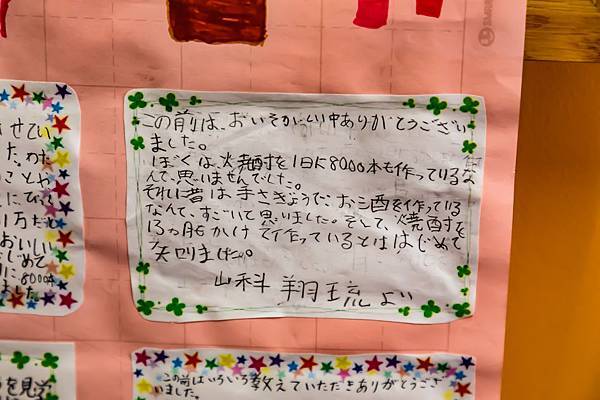 この前は、おいそがしい中ありがとうござい
ました。
ぼくは、焼酎を1日に8000本も作っているな
んて、思いませんでした。
それに昔は手さぎょうで、お酒を作っている
なんて、すごいて思いました。そして、焼酎を
13っ月かけて作っているとは、はじめて
矢叩ました。
山科 翔琉より
せてい
た。わた
ことや
にびって
1万だも
おいしい
じめて
に8000本
ました。
を見学
この前はいろいろ教えていただきありがとうござ
いました。